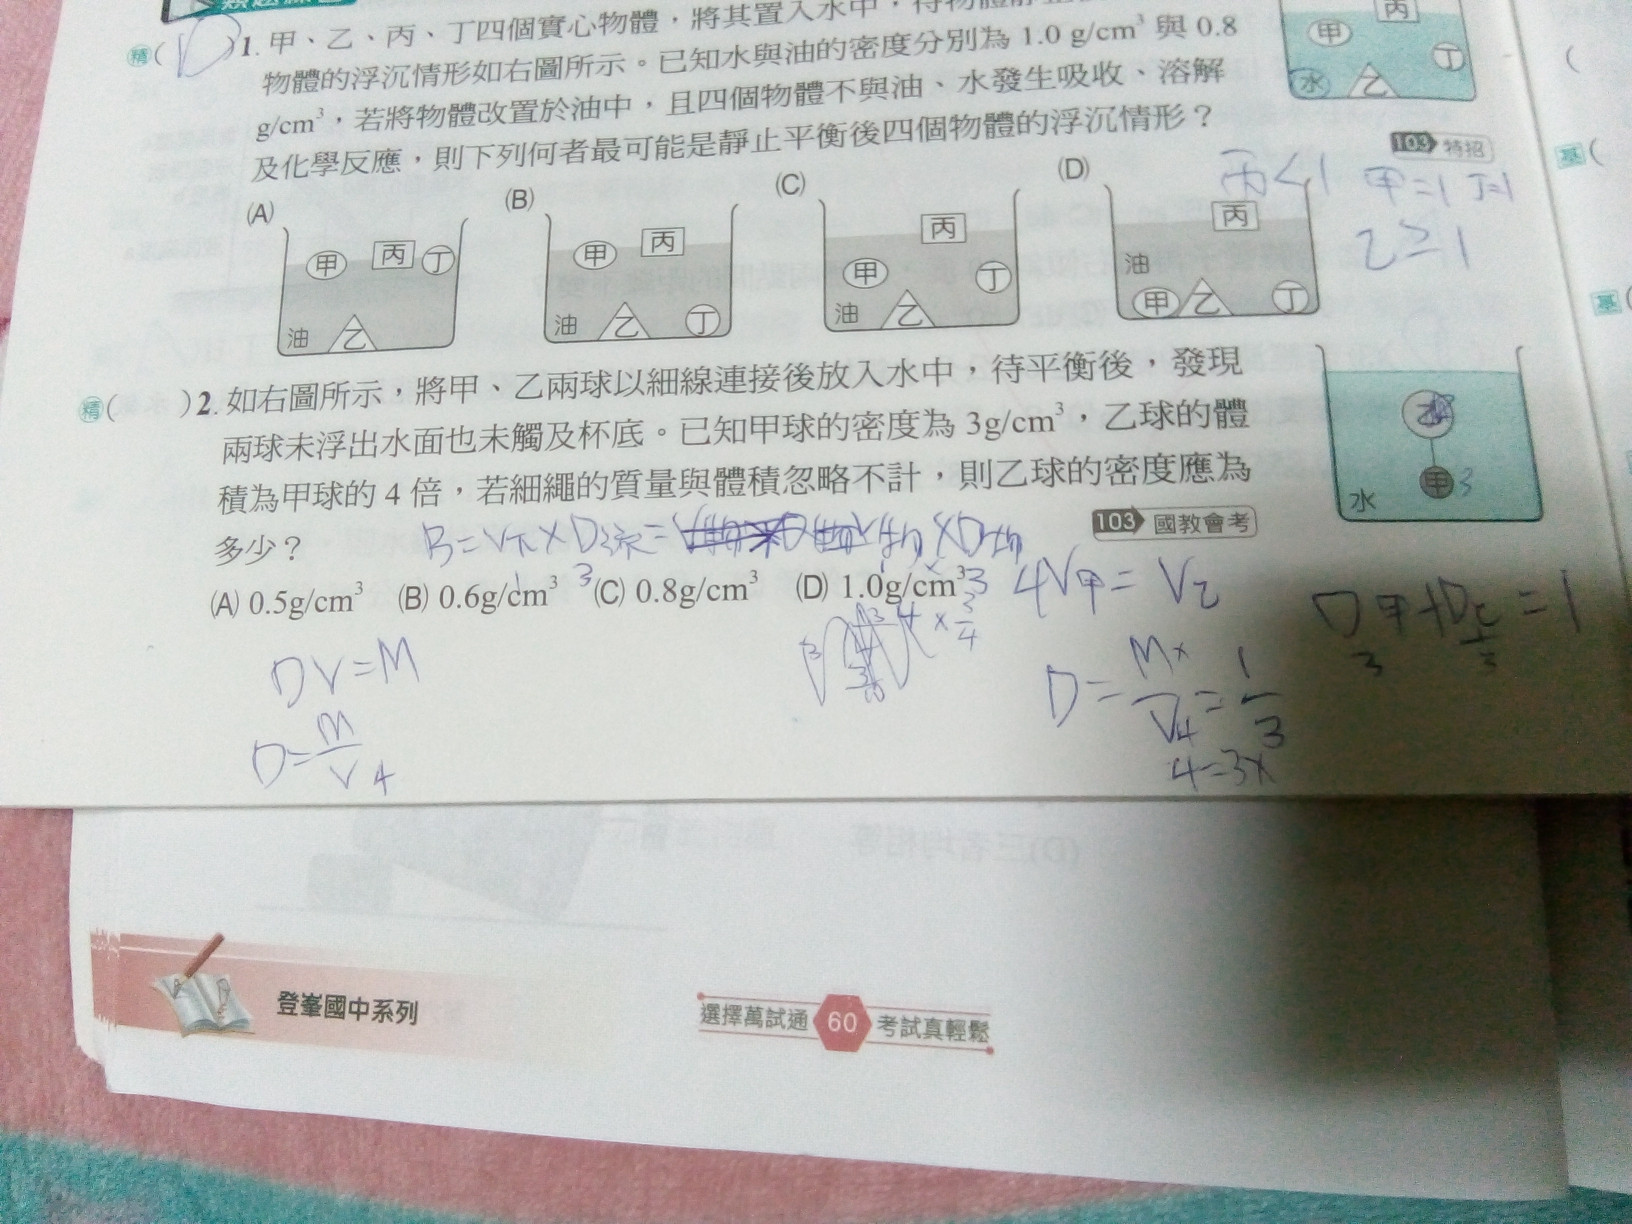 精( D )1. 甲、乙、丙、丁四個實心物體,將其置入水中,待物體靜止
物體的浮沉情形如右圖所示。已知水與油的密度分別為 1.0 g/cm³ 與 0.8
g/cm³,若將物體改置於油中,且四個物體不與油、水發生吸收、溶解
及化學反應,則下列何者最可能是靜止平衡後四個物體的浮沉情形?
丙
甲
丁
水
乙
103 特招
丙<1 甲=1 丁=1
乙≥1
(A)
甲 丙 丁
油 乙
(B)
甲 丙
油 乙 丁
(C)
丙
甲 丁
油 乙
(D)
丙
油
甲 乙 丁
精( )2. 如右圖所示,將甲、乙兩球以細線連接後放入水中,待平衡後,發現
兩球未浮出水面也未觸及杯底。已知甲球的密度為 3g/cm³,乙球的體
積為甲球的 4 倍,若細繩的質量與體積忽略不計,則乙球的密度應為
多少?
103 國教會考
乙
甲 3
水
B=V下×D液= V物×D物
(A) 0.5g/cm³ (B) 0.6g/cm³ (C) 0.8g/cm³ (D) 1.0g/cm³
4V甲=V乙
DV=M
D=M/V 4
D=M×/V4=1/3
4=3x
D甲+D乙=1
3
基(
基(
登峯國中系列
選擇萬試通 60 考試真輕鬆